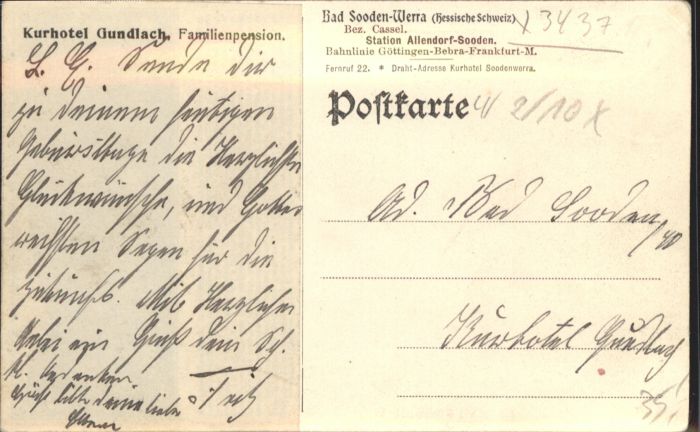 Kurhotel Gundlach, Familienpension.
L. E. Sende dir
zu deinem heutigen
Geburtstage die Herzlichsten
Glückwünsche, und Gottes
reichsten Segen für die
Zukunft. Mit Herzlichen
Gruß dein Sch.
Grüße bitte deine liebe
Eltern
Bad Sooden-Werra (Hessische Schweiz)
Bez. Cassel.
Station Allendorf-Sooden.
Bahnlinie Göttingen-Bebra-Frankfurt-M.
Fernruf 22. * Draht-Adresse Kurhotel Soodenwerra.
13437
Postkarte
2/10 x
Ad. Bad Sooden
Kurhotel Gundlach
35.